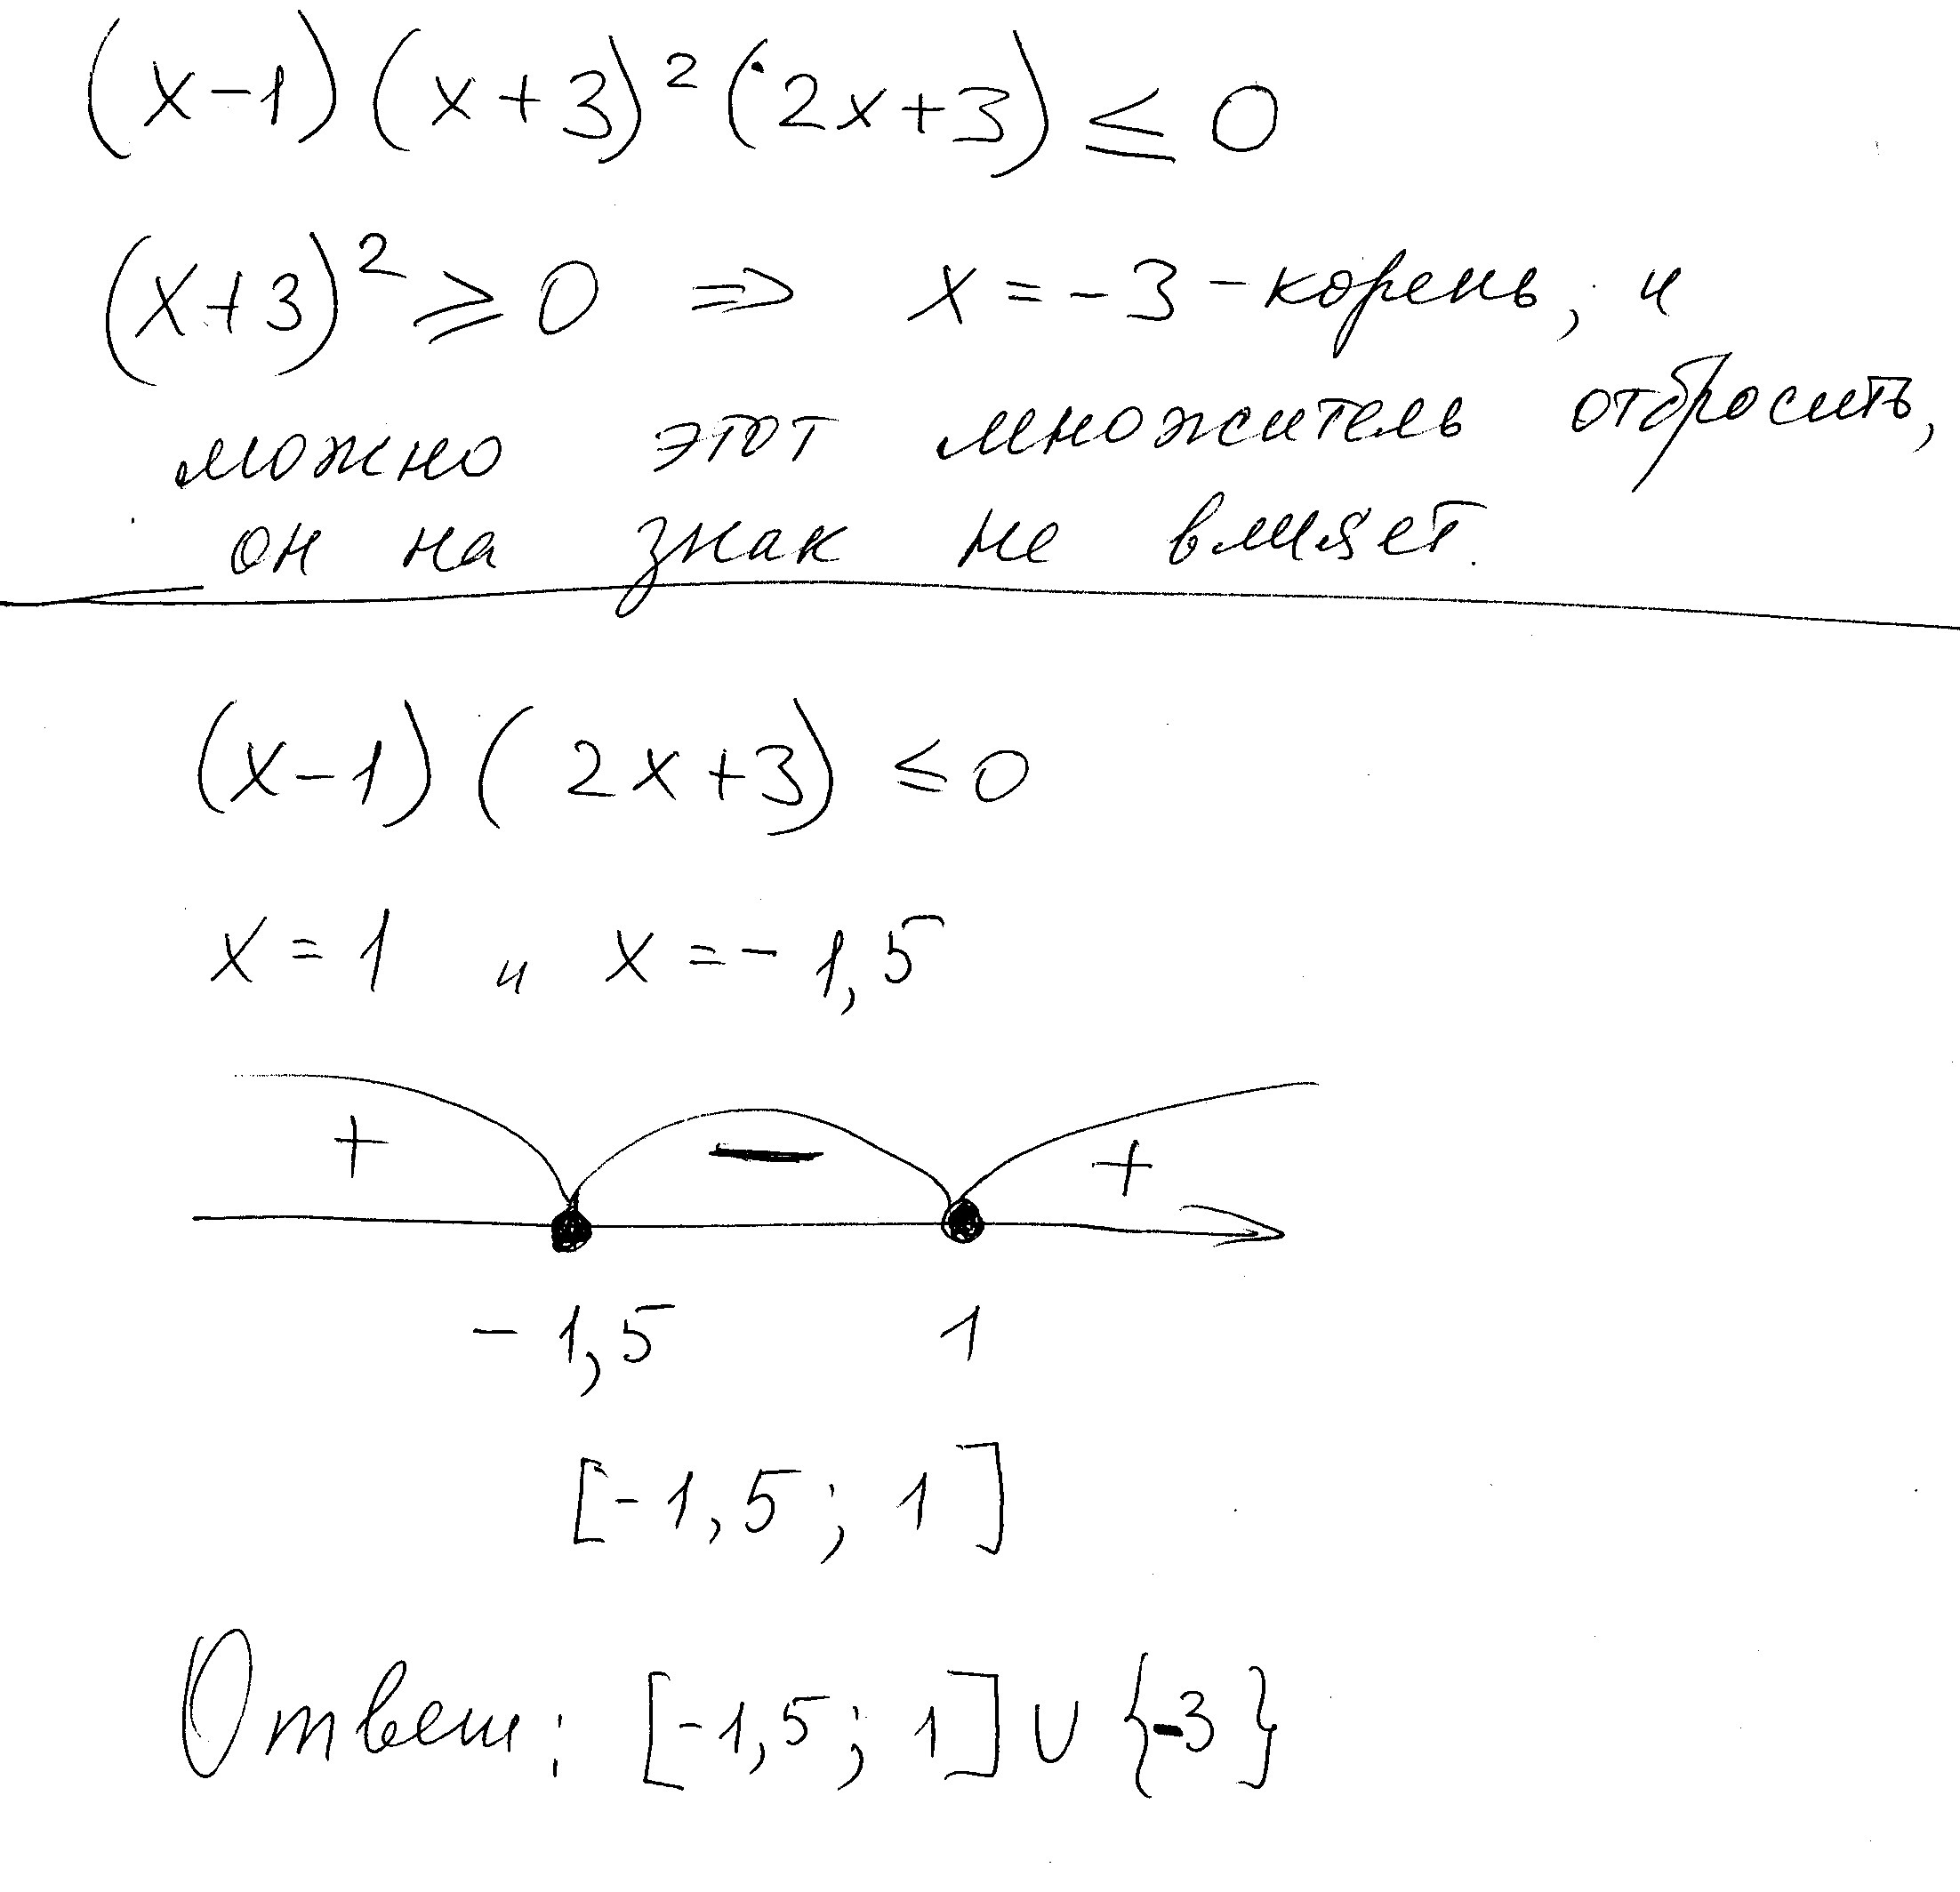 (x-1)(x+3)²(2x+3) ≤ 0
(x+3)² ⩾ 0 => x = -3 - корень, и
можно этот множитель отбросить,
он на знак не влияет.
(x-1)(2x+3) ≤ 0
x = 1 и x = -1,5
+ - +
-1,5 1
[-1,5; 1]
Ответ: [-1,5; 1] ∪ {-3}